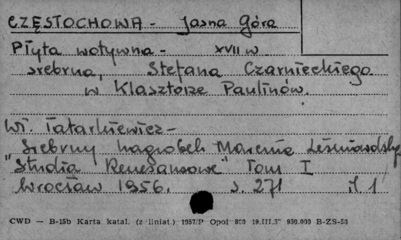 CZĘSTOCHOWA - Jasna Góra
Płyta wotywna - XVII w
srebrna, Stefana Czarnieckiego
w Klasztorze Paulinów.
Wł. Tatarkiewicz -
Srebrny nagrobek Marcina Leśniowolskiego
"Studia Renesansowe" Tom I
Wrocław 1956. s. 271 il 1
CWD — B-15b Karta katal. (z liniat.) 1957/P Opol 800 19.III.57 930.000 B-ZS-50